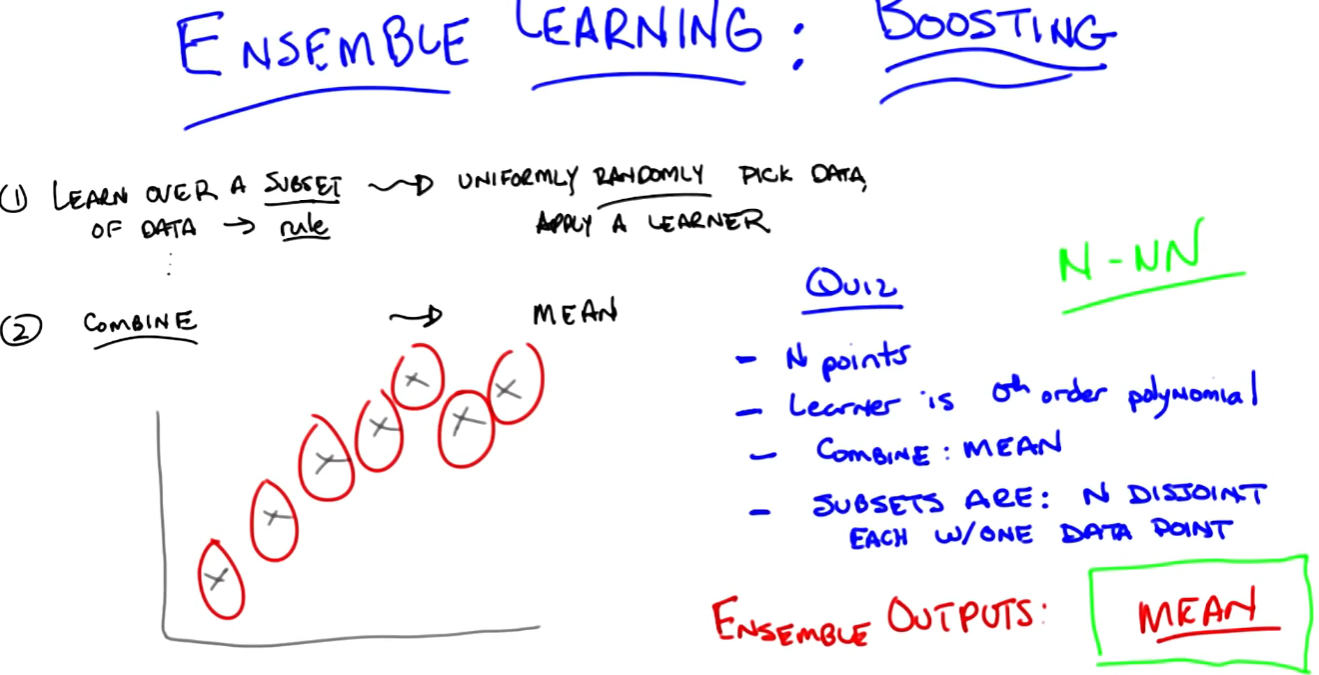 ENSEMBLE LEARNING: BOOSTING
(1) LEARN OVER A SUBSET → UNIFORMLY RANDOMLY PICK DATA,
OF DATA → rule APPLY A LEARNER
⋮
(2) COMBINE → MEAN
N-NN
QUIZ
- N points
- Learner is 0th order polynomial
- COMBINE: MEAN
- SUBSETS ARE: N DISJOINT
EACH W/ONE DATA POINT
ENSEMBLE OUTPUTS: MEAN